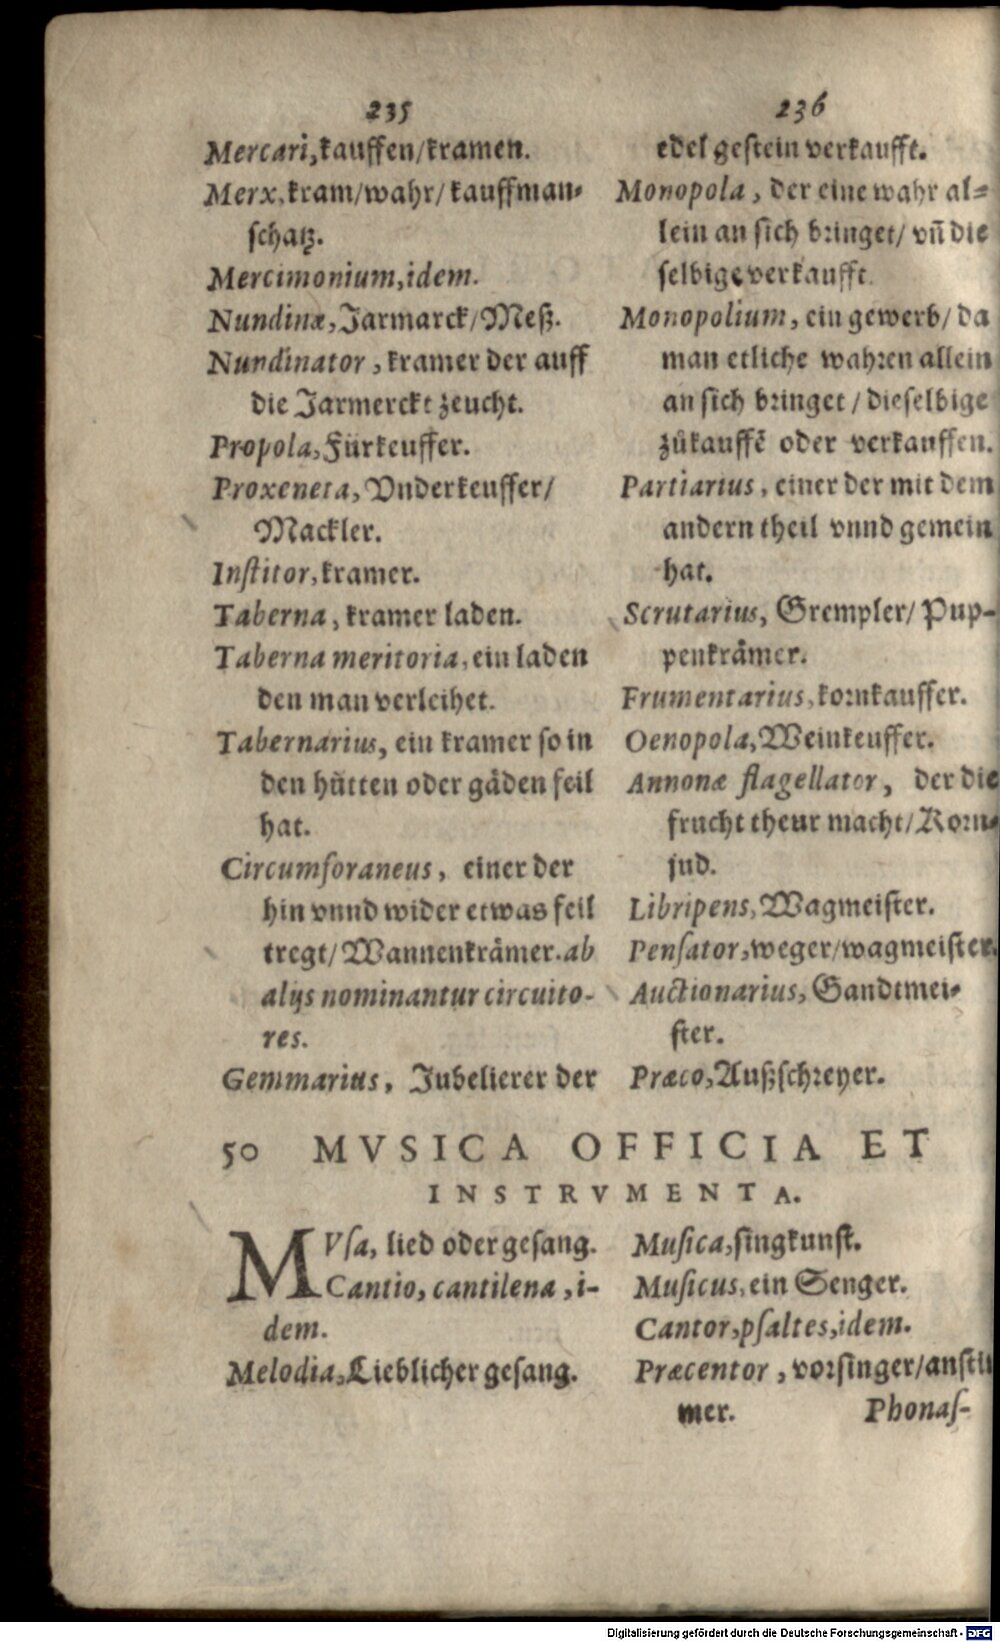 235
Mercari, kauffen/kramen.
Merx, kram/wahr/kauffman⸗
schatz.
Mercimonium, idem.
Nundinæ, Jarmarck/Meß.
Nundinator, kramer der auff
die Jarmerckt zeucht.
Propola, Fürkeuffer.
Proxeneta, Vnderkeuffer/
Mackler.
Institor, kramer.
Taberna, kramer laden.
Taberna meritoria, ein laden
den man verleihet.
Tabernarius, ein kramer so in
den hütten oder gåden feil
hat.
Circumforaneus, einer der
hin vnnd wider etwas feil
tregt/Wannenkråmer. ab
alijs nominantur circuito-
res.
Gemmarius, Jubelierer der
236
edel gestein verkaufft.
Monopola, der eine wahr al⸗
lein an sich bringet/ vñ die
selbige verkaufft.
Monopolium, ein gewerb/ da
man etliche wahren allein
an sich bringet/dieselbige
zůkauffē oder verkauffen.
Partiarius, einer der mit dem
andern theil vnnd gemein
hat.
Scrutarius, Grempler/ Pup-
penkråmer.
Frumentarius, kornkauffer.
Oenopola, Weinkeuffer.
Annonæ flagellator, der die
frucht theur macht/Korn⸗
jud.
Libripens, Wagmeister.
Pensator, weger/wagmeister.
Auctionarius, Gandtmei⸗
ster.
Præco, Außschreyer.
50 MVSICA OFFICIA ET
INSTRVMENTA.
MVsa, lied oder gesang.
Cantio, cantilena, i-
dem.
Melodia, Lieblicher gesang.
Musica, singkunst.
Musicus, ein Senger.
Cantor, psaltes, idem.
Præcentor, vorsinger/anstim
mer.
Phonas-
Digitalisierung gefördert durch die Deutsche Forschungsgemeinschaft - DFG